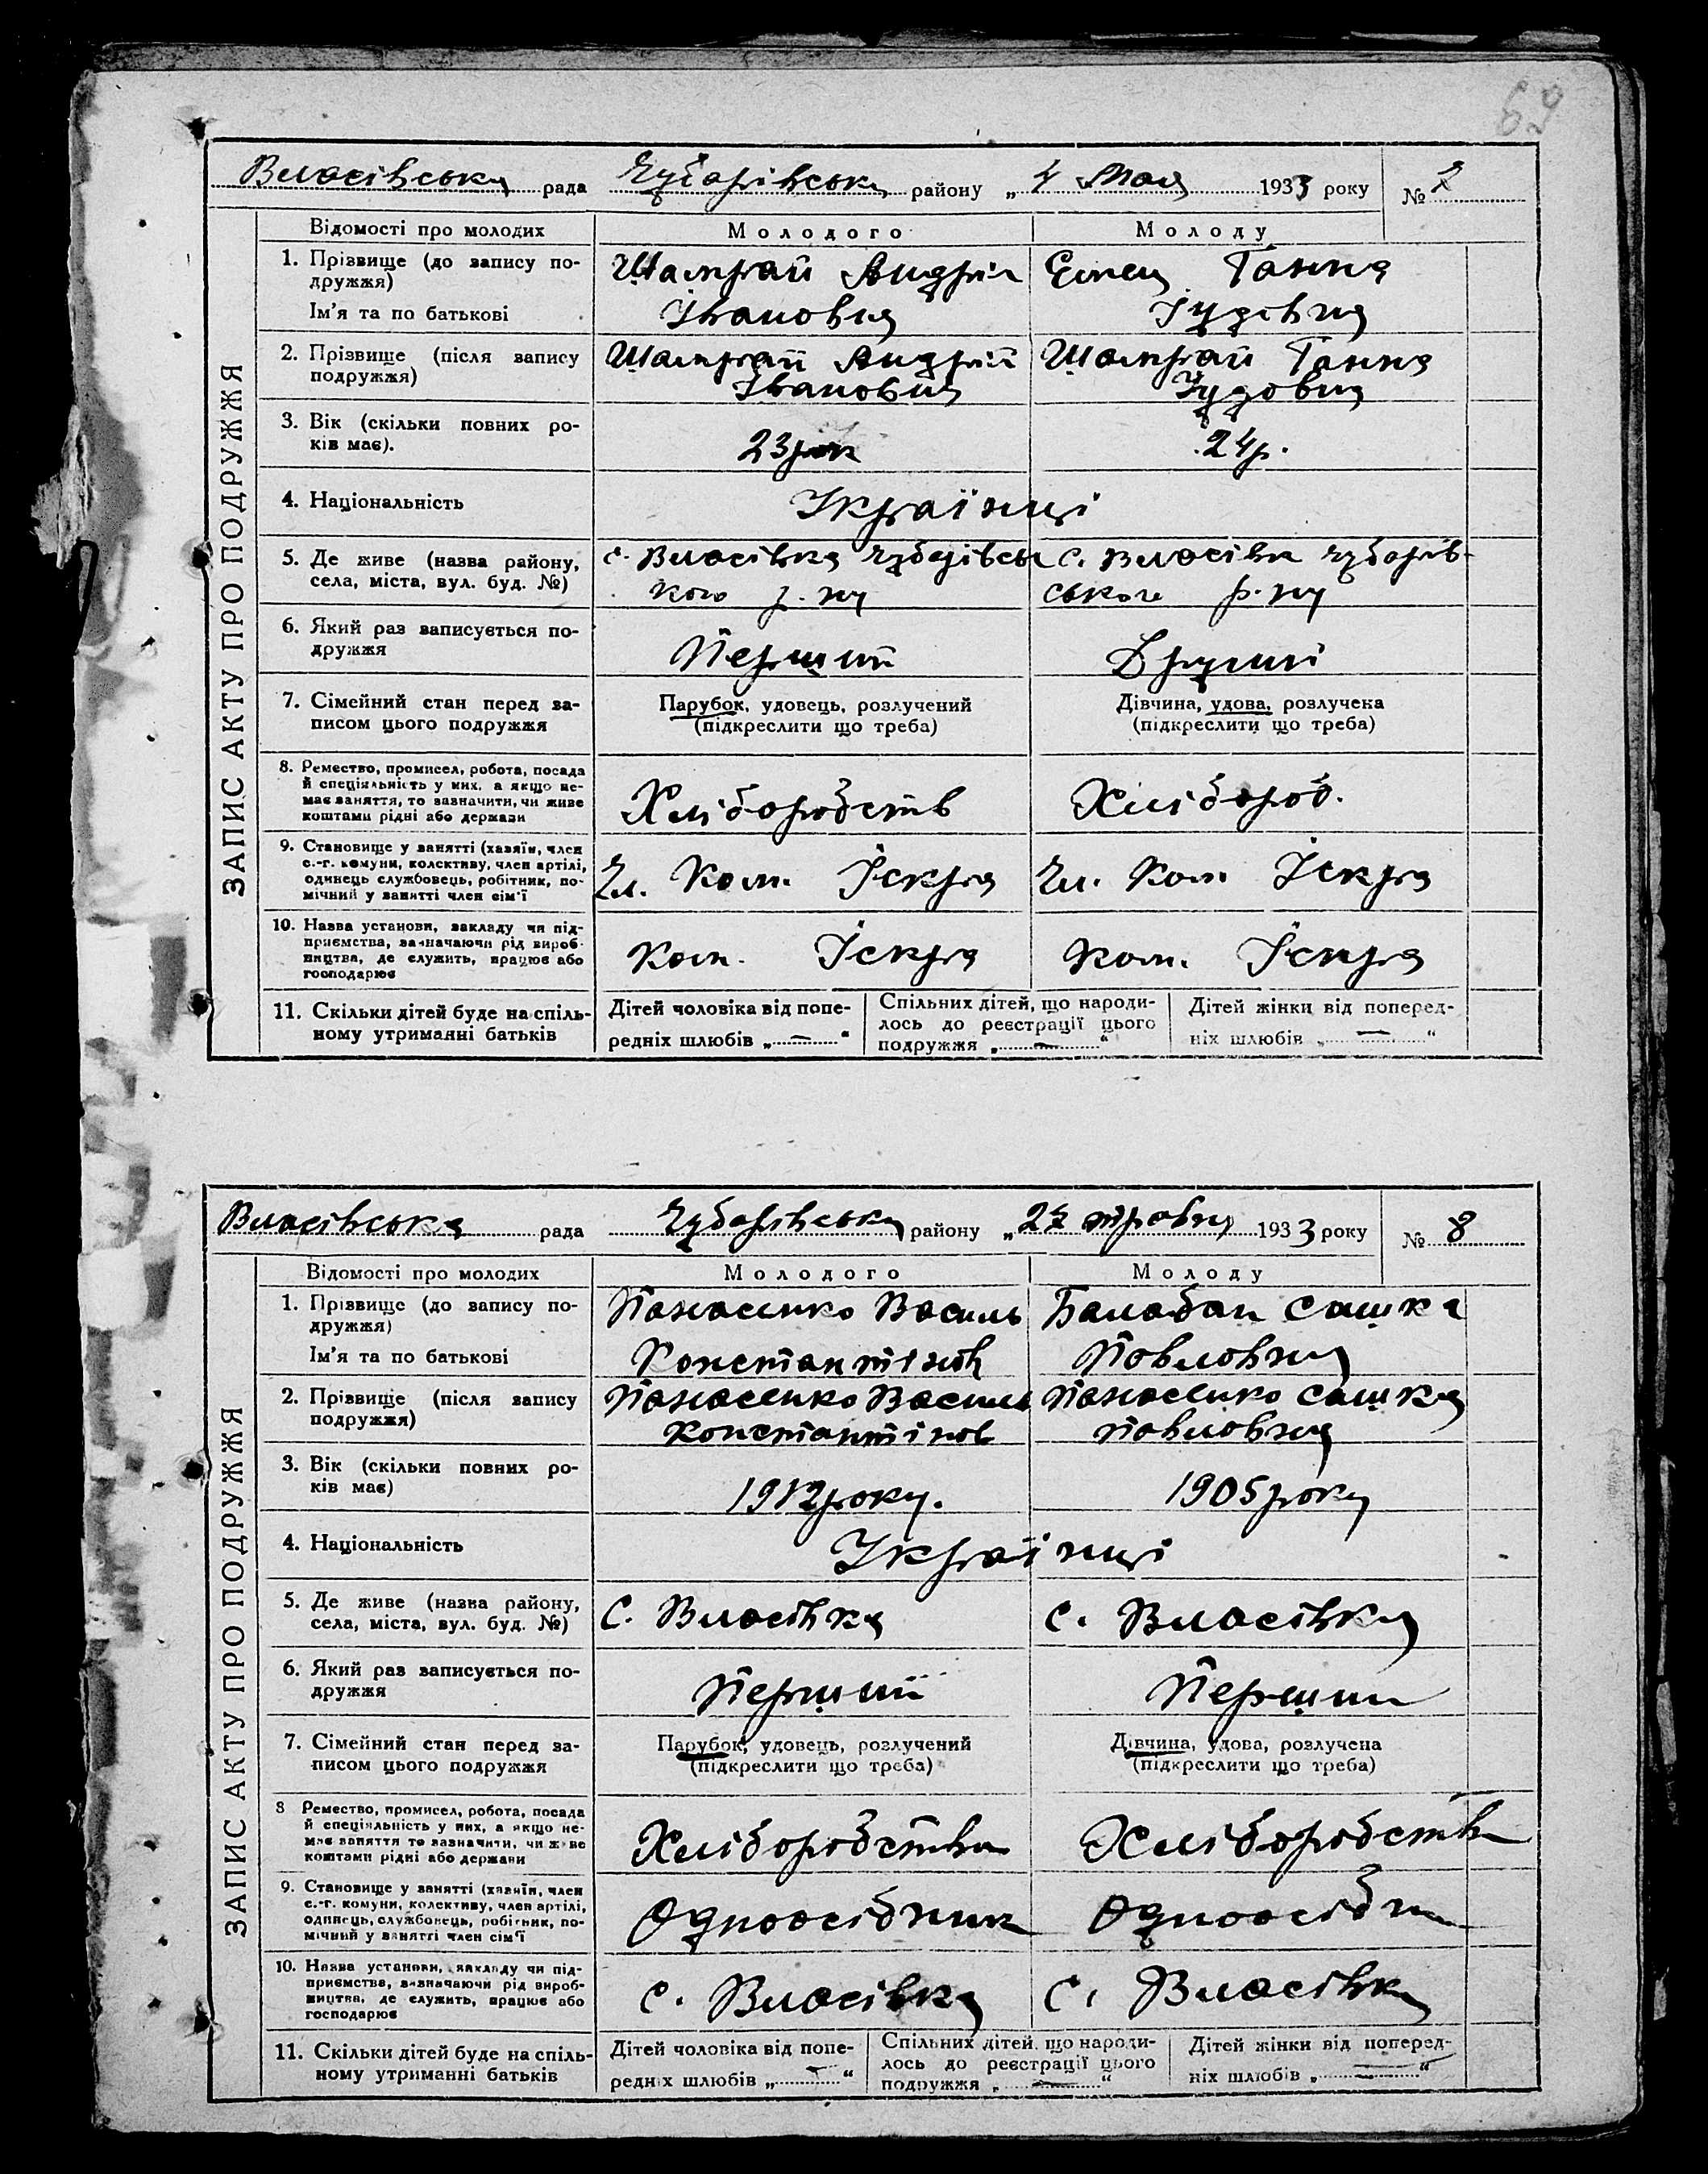 69
Власівська рада Чубарівська району „4 Мая 1933 року №
Відомості про молодих Молодого Молоду
ЗАПИС АКТУ ПРО ПОДРУЖЖЯ
1. Прізвище (до запису по- Шамрай Андрій Ганна
дружжя)
Ім'я та по батькові Іванович
2. Прізвище (після запису Шамрай Андрій Шамрай Ганна
подружжя) Іванович
3. Вік (скільки повних ро- 23 рок 24 р.
ків має).
4. Національність Українці
5. Де живе (назва району, с. Власівка Чубарівсь с. Власівк Чубарів-
села, міста, вул. буд. №) кого р. ну ського р. ну
6. Який раз записується по- Перший Другий
дружжя
7. Сімейний стан перед за- Парубок, удовець, розлучений Дівчина, удова, розлучека
писом цього подружжя (підкреслити що треба) (підкреслити що треба)
8. Ремество, промисел, робота, посада
й спеціяльність у них, а якщо не-
має заняття, то зазначити, чи живе Хліборобств Хлібороб.
коштами рідні або держави
9. Становище у занятті (хазяїн, член
с.-г. комуни, колективу, член артілі,
одинець службовець, робітник, по- Чл. Ком. Іскра Чл. Ком Іскра
мічний у занятті член сім'ї
10. Назва установи, закладу чи під-
приємства, зазначаючи рід вироб-
ництва, де служить, працює або Ком. Іскра Ком. Іскра
господарює
11. Скільки дітей буде на спіль- Дітей чоловіка від попе- Спільних дітей, що народи- Дітей жінки від поперед-
ному утриманні батьків редніх шлюбів „—“ лось до реєстрації цього ніх шлюбів „—“
подружжя „—“
Власівська рада Чубарівська району „27 травня 1933 року № 8
Відомості про молодих Молодого Молоду
ЗАПИС АКТУ ПРО ПОДРУЖЖЯ
1. Прізвище (до запису по- Панасенко Василь Балабан Сашка
дружжя)
Ім'я та по батькові Константінов Павловна
2. Прізвище (після запису Панасенко Василь Панасенко Сашка
подружжя) Константінов Павловна
3. Вік (скільки повних ро- 1912 року. 1905 року
ків має)
4. Національність Українці
5. Де живе (назва району, с. Власівка с. Власівка
села, міста, вул. буд. №)
6. Який раз записується по- Перший Перший
дружжя
7. Сімейний стан перед за- Парубок, удовець, розлучений Дівчина, удова, розлучена
писом цього подружжя (підкреслити що треба) (підкреслити що треба)
8 Ремество, промисел, робота, посада
й спеціяльність у них, а якщо не-
має заняття то зазначити, чи живе Хліборобства Хліборобств
коштами рідні або держави
9. Становище у занятті (хазяїн, член
с.-г. комуни, колективу, член артілі,
одинець, службовець, робітник, по- Одноосібник Одноосібн
мічний у занятті член сім'ї
10. Назва установи, закладу чи під-
приємства, зазначаючи рід вироб-
ництва, де служить, працює або с. Власівка с. Власівка
господарює
11. Скільки дітей буде на спіль- Дітей чоловіка від попе- Спільних дітей, що народи- Дітей жінки від поперед-
ному утриманні батьків редніх шлюбів „—“ лось до реєстрації цього ніх шлюбів „—“
подружжя „—“